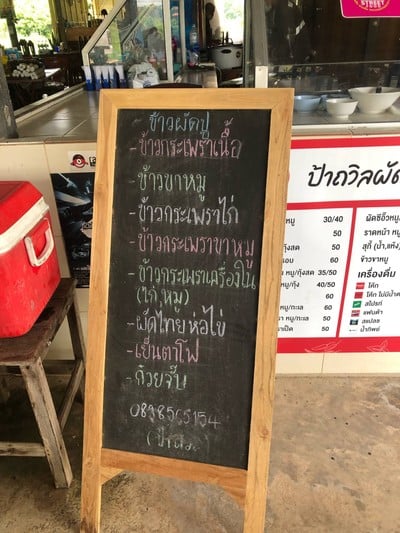 - ข้าวผัดปู
- ข้าวกระเพราเนื้อ
- ข้าวขาหมู
- ข้าวกระเพราไก่
- ข้าวกระเพราขาหมู
- ข้าวกระเพราเครื่องใน
(ไก่,หมู)
- ผัดไทยห่อไข่
- เย็นตาโฟ
- ก๋วยจั๊บ
0898565154
ป้าถวิลผัด
หมู 30/40
50
กุ้งสด 50
60
หมู/กุ้งสด 35/50
หมู/กุ้ง 40/50
60
หมู/ทะเล 60
50
หมู/ทะเล 60
ผัดซีอิ๊วหมู
ราดหน้า หมู
สุกี้ (น้ำ,แห้ง)
ข้าวขาหมู
เครื่องดื่ม
โค้ก
โค้ก ไม่มีน้ำ
สไปรท์
แฟนต้า
สแปลช
น้ำทิพย์